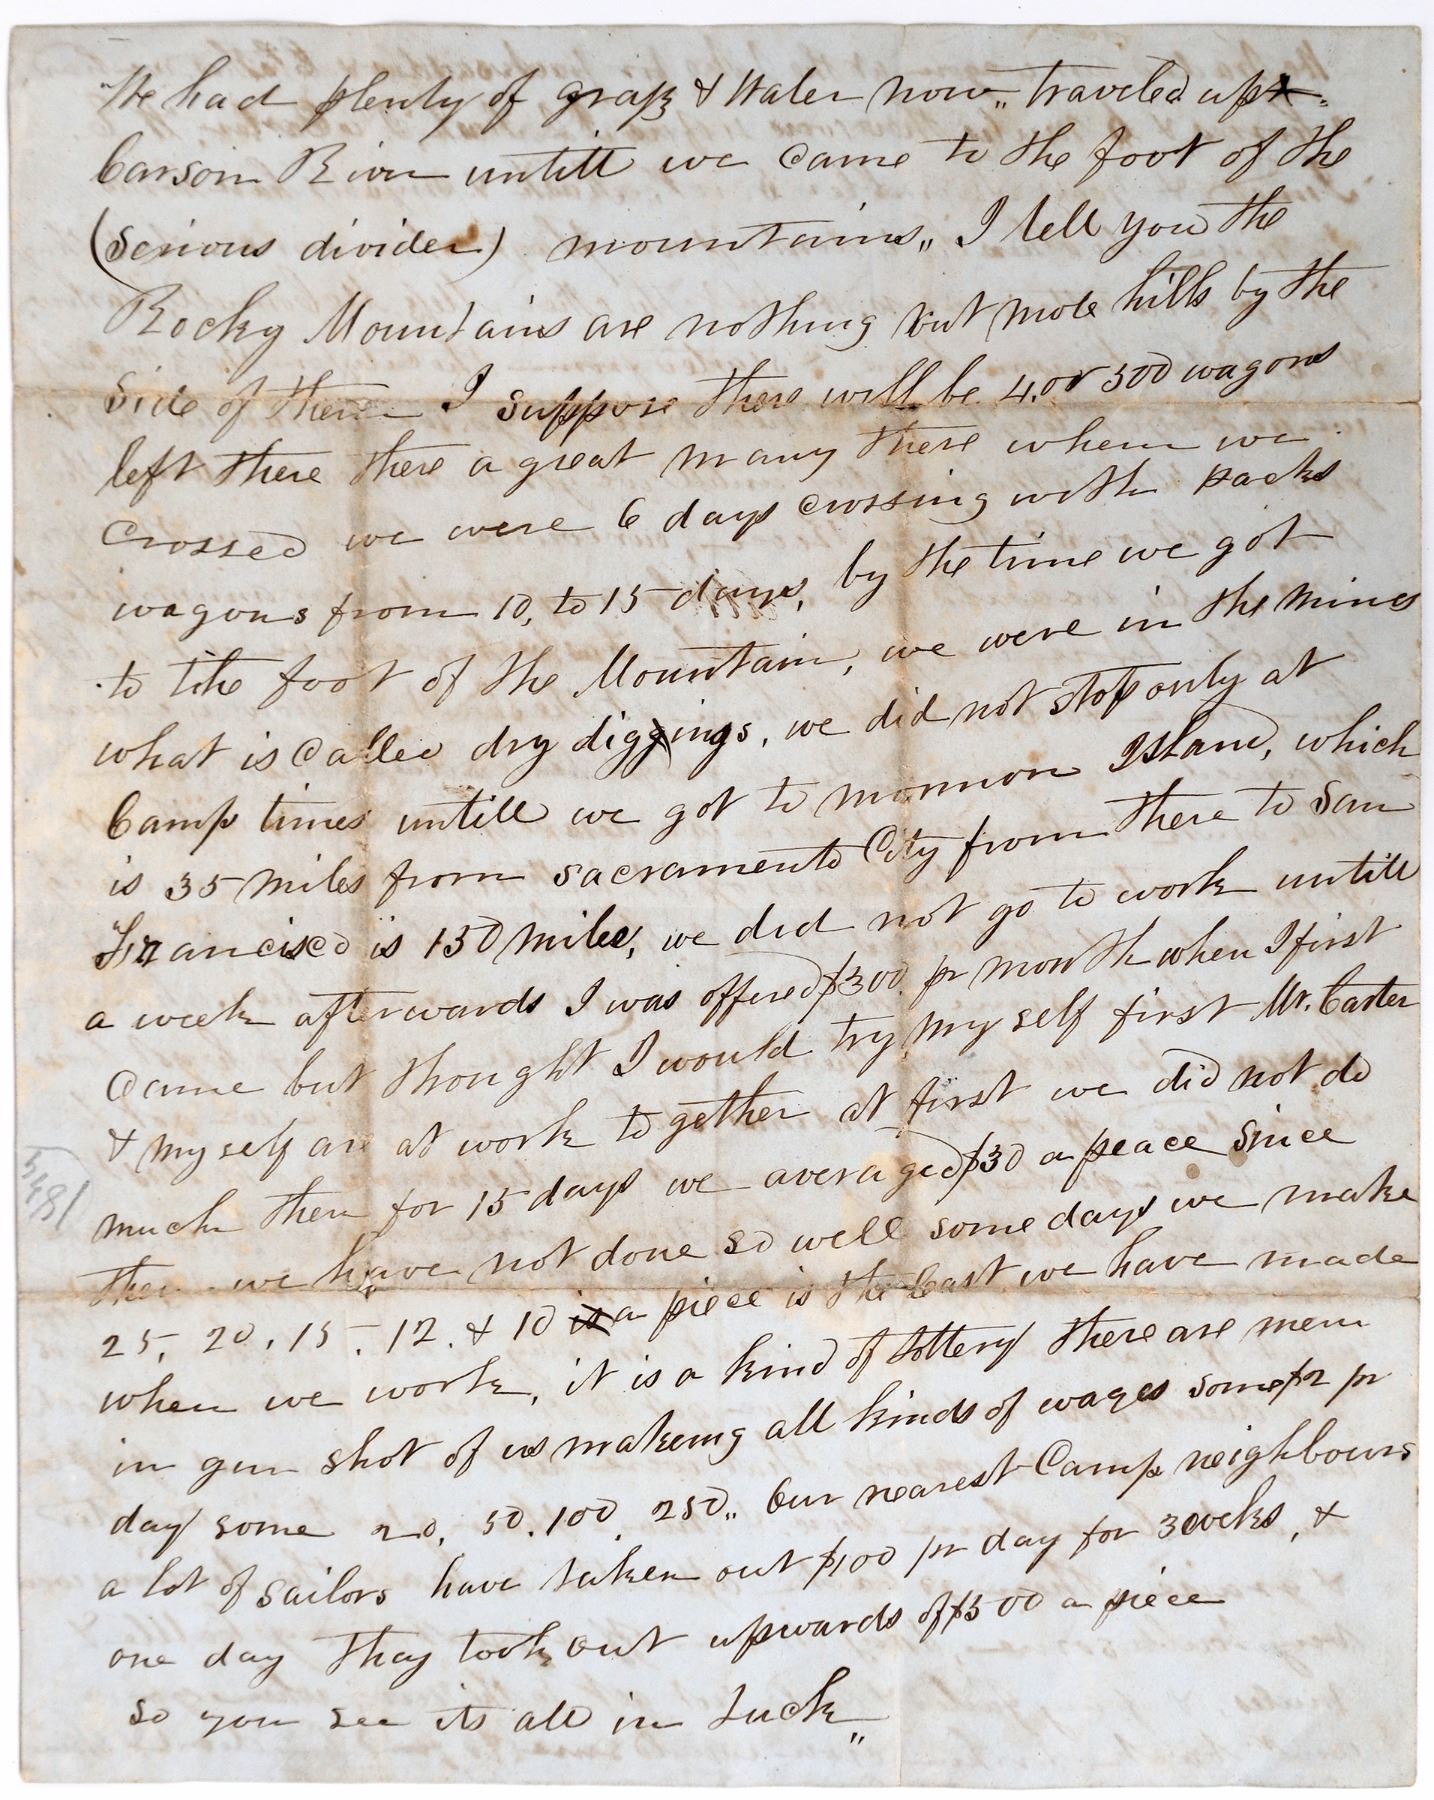 We had plenty of grass & Water now,, traveled up
Carson River untill we came to the foot of the
(Serious divider) mountains,, I tell you the
Rocky Mountains are nothing but mole hills by the
side of them I suppose there will be 4. or 500 wagons
left there there a great many there when we
crossed we were 6 days crossing with packs
wagons from 10, to 15 days, by the time we got
to the foot of the Mountain, we were in the mines
what is called dry diggings, we did not stop only at
Camp times untill we got to mormon Island, which
is 35 miles from sacramento City from there to San
Francisco is 150 miles, we did not go to work untill
a week afterwards I was offered $300. pr month when I first
came but thought I would try my self first Mr. Carter
& my self are at work to gether at first we did not do
much then for 15 days we averaged $30 a peace since
then we have not done so well some days we make
25, 20, 15, 12. & 10 a piece is the least we have made
when we work, it is a kind of Lottery there are men
in gun shot of us makeing all kinds of wages some $2 pr
day some 20, 50. 100, 250,, Our nearest Camp neighbours
a lot of sailors have taken out $100 pr day for 3 weeks, &
one day thay took out upwards of $500 a piece
so you see its all in Luck,,